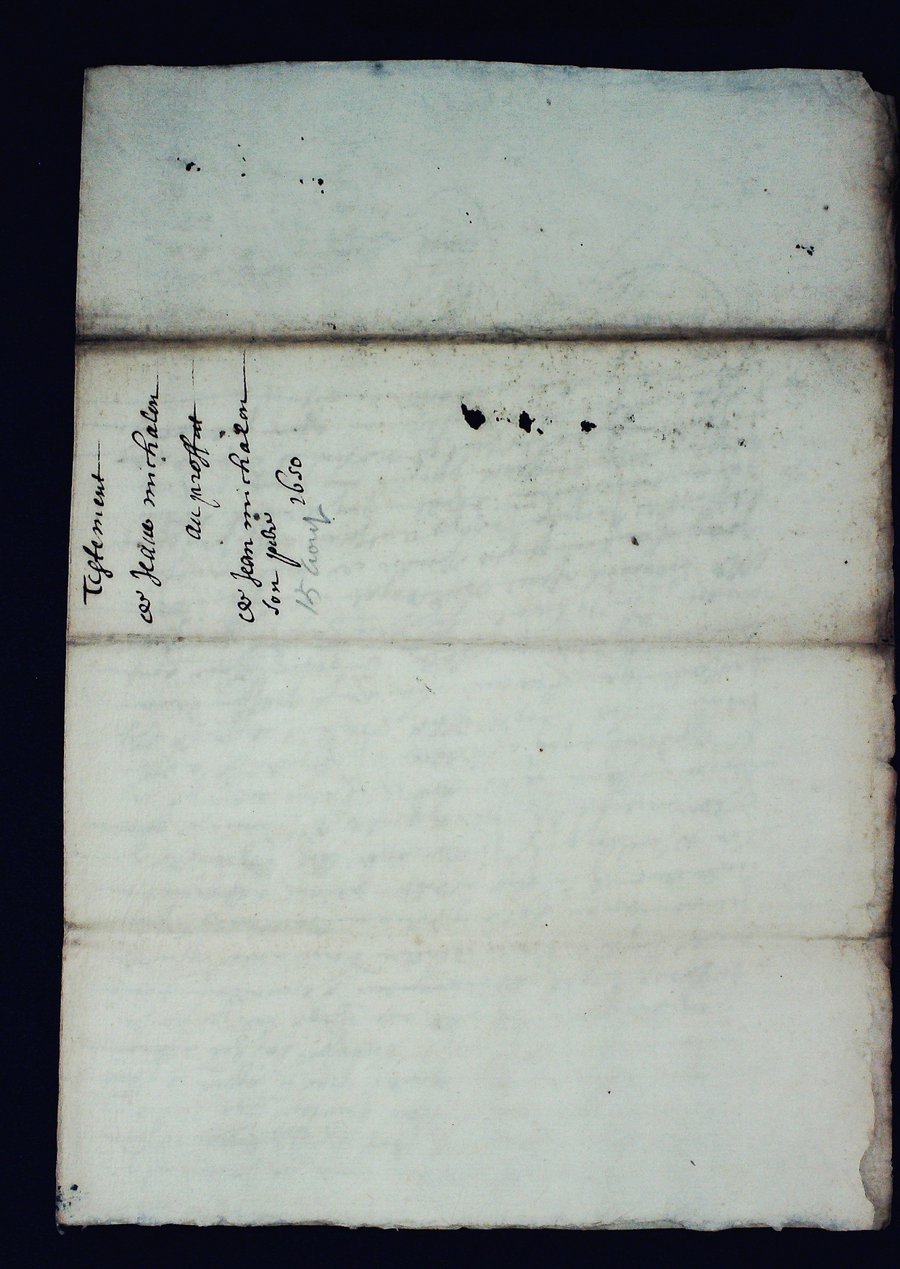 Testement
de Jedue michalon
au proffit
de Jean michalon
son pere 1650
15 aout